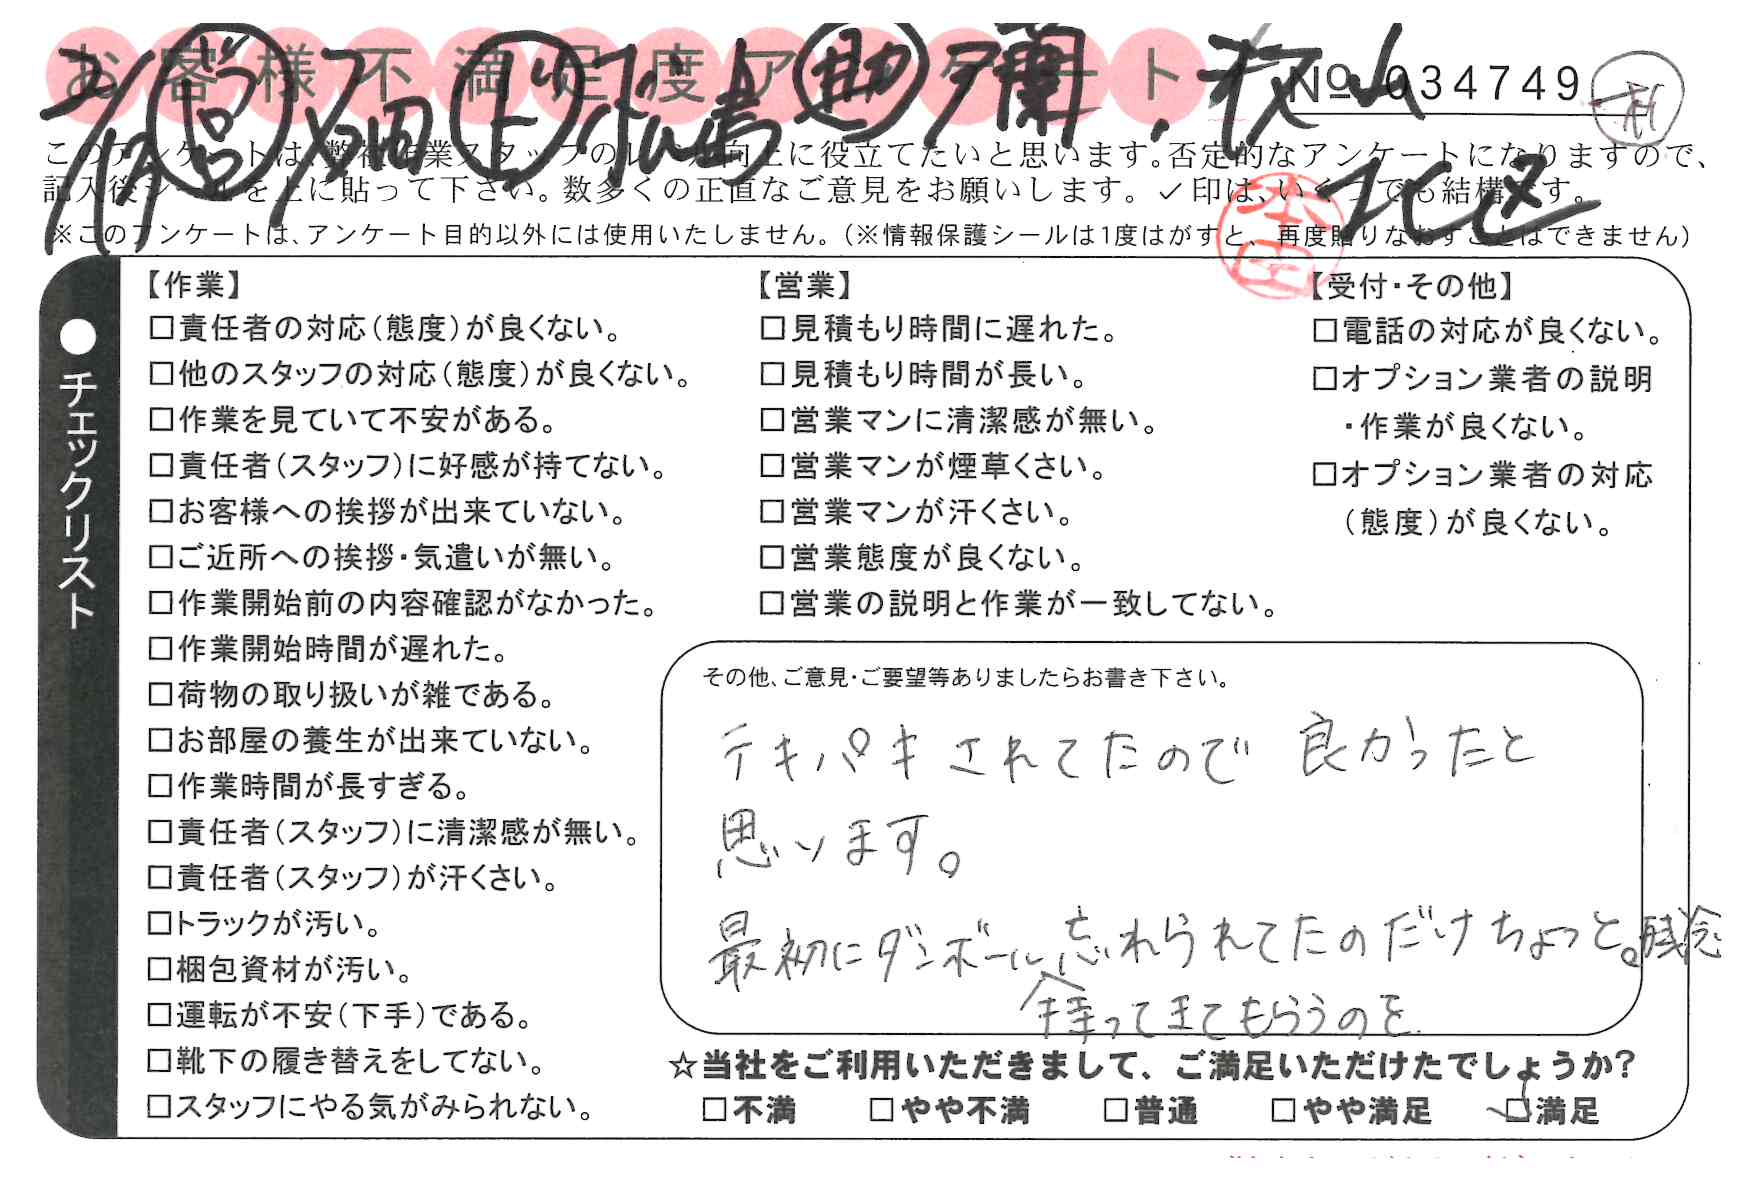 お客様不満足度アンケート
№ 034749
このアンケートは、弊社作業スタッフのレベル向上に役立てたいと思います。否定的なアンケートになりますので、
記入後シールを上に貼って下さい。数多くの正直なご意見をお願いします。✓印は、いくつでも結構です。
※このアンケートは、アンケート目的以外には使用いたしません。（※情報保護シールは1度はがすと、再度貼りなおすことはできません）
北区
本田
●チェックリスト
【作業】
□責任者の対応（態度）が良くない。
□他のスタッフの対応（態度）が良くない。
□作業を見ていて不安がある。
□責任者（スタッフ）に好感が持てない。
□お客様への挨拶が出来ていない。
□ご近所への挨拶・気遣いが無い。
□作業開始前の内容確認がなかった。
□作業開始時間が遅れた。
□荷物の取り扱いが雑である。
□お部屋の養生が出来ていない。
□作業時間が長すぎる。
□責任者（スタッフ）に清潔感が無い。
□責任者（スタッフ）が汗くさい。
□トラックが汚い。
□梱包資材が汚い。
□運転が不安（下手）である。
□靴下の履き替えをしてない。
□スタッフにやる気がみられない。
【営業】
□見積もり時間に遅れた。
□見積もり時間が長い。
□営業マンに清潔感が無い。
□営業マンが煙草くさい。
□営業マンが汗くさい。
□営業態度が良くない。
□営業の説明と作業が一致してない。
【受付・その他】
□電話の対応が良くない。
□オプション業者の説明
・作業が良くない。
□オプション業者の対応
（態度）が良くない。
その他、ご意見・ご要望等ありましたらお書き下さい。
テキパキされてたので 良かったと
思います。
最初にダンボール忘れられてたのだけちょっと。残念
持ってきてもらうのを
☆当社をご利用いただきまして、ご満足いただけたでしょうか?
□不満 □やや不満 □普通 □やや満足 □満足